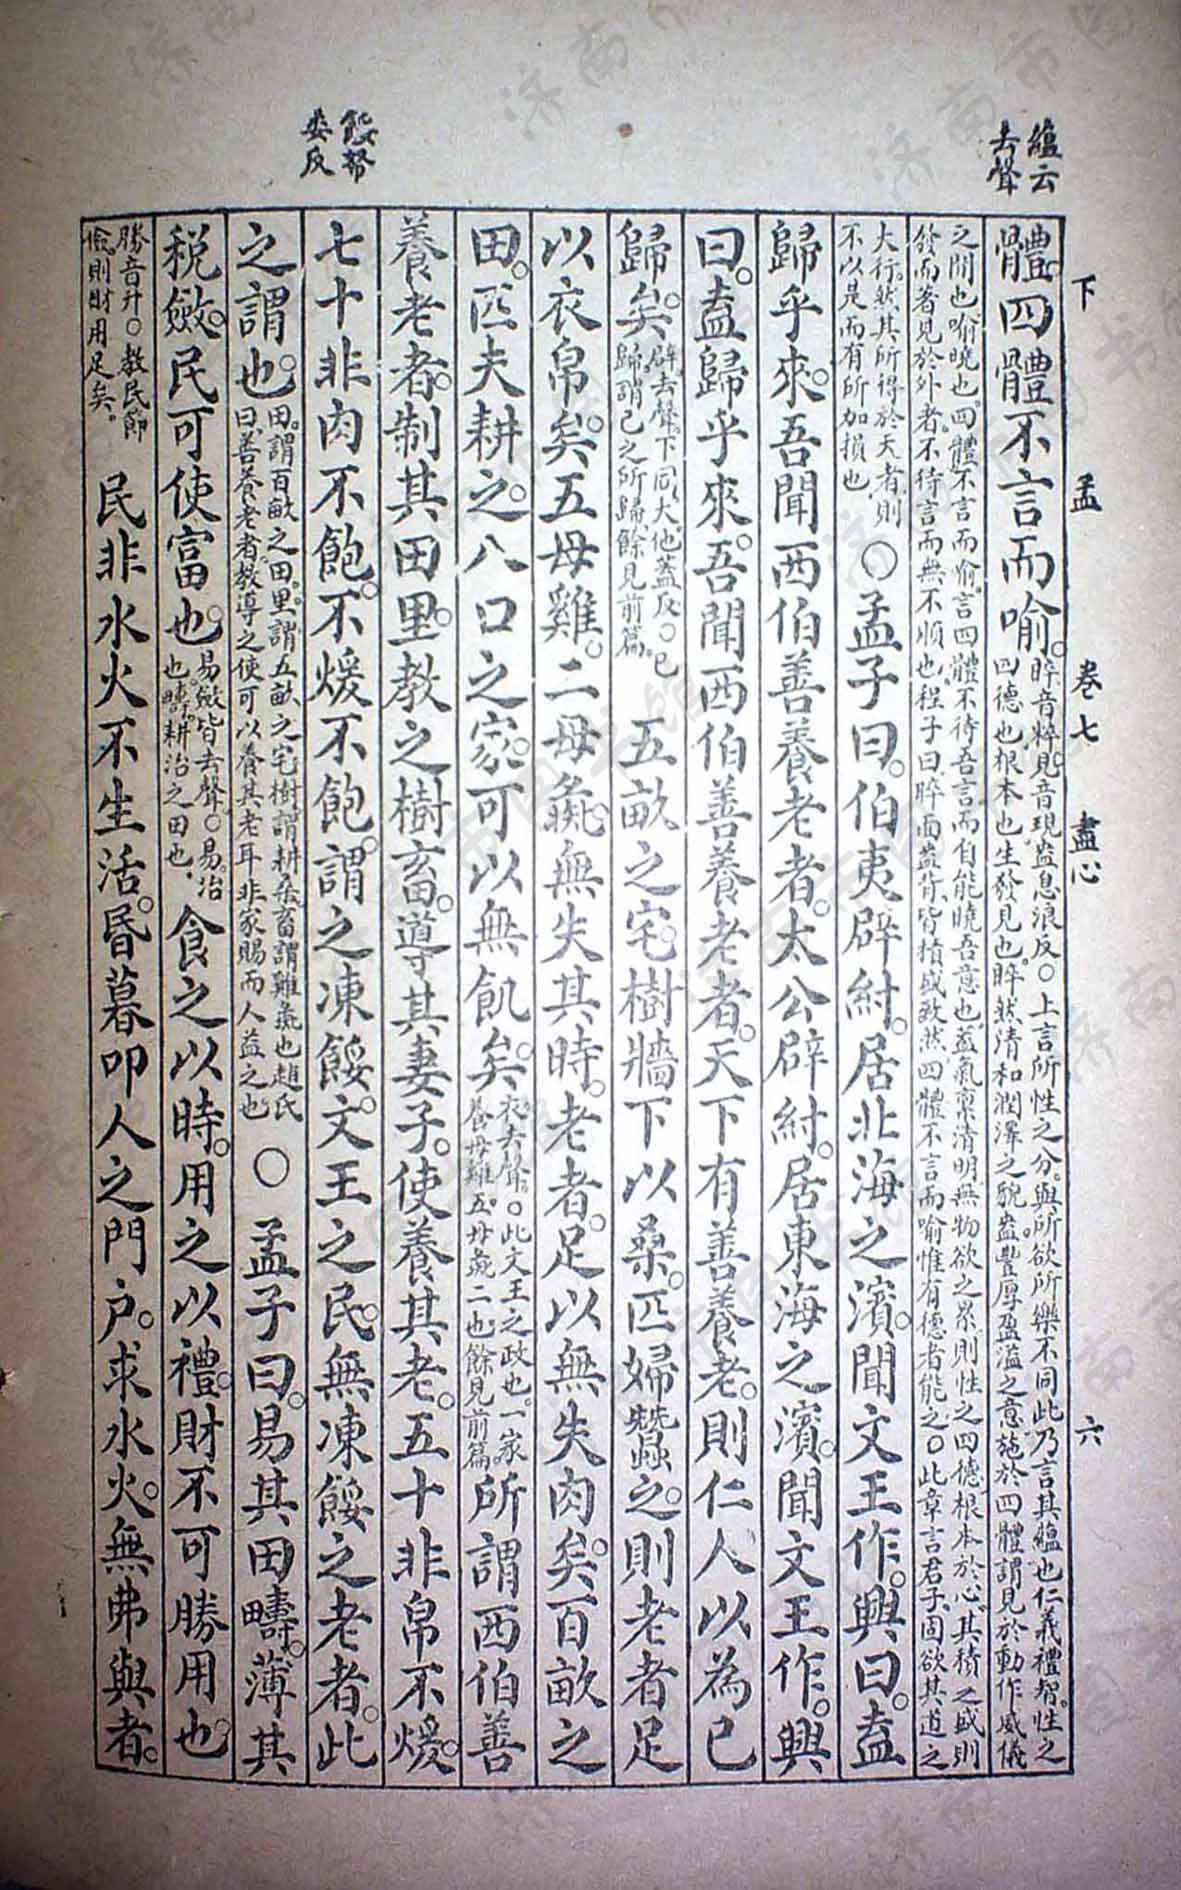 蘊云
去聲
餒努
委反
下孟 卷七 盡心 六
體。四體不言而喻。
睟音粹。見音現。盎息浪反。○上言所性之分。與所欲所樂不同。此乃言其蘊也。仁義禮智。性之
四德也。根本也。生發見也。睟然清和潤澤之貌。盎豐厚盈溢之意。施於四體。謂見於動作威儀
之間也。喻曉也。四體不言而喻。言四體不待吾言。而自能曉吾意也。蓋氣稟清明。無物欲之累。則性之四德。根本於心。其積之盛。則
發而著見於外者。不待言而無不順也。程子曰。睟面盎背。皆積盛致然。四體不言而喻。惟有德者能之。○此章言君子固欲其道之
大行。然其所得於天者。則
不以是而有所加損也
○孟子曰。伯夷辟紂。居北海之濱。聞文王作。興曰。盍
歸乎來。吾聞西伯善養老者。太公辟紂。居東海之濱。聞文王作。興
曰。盍歸乎來。吾聞西伯善養老者。天下有善養老。則仁人以為已
歸矣。
辟。去聲。下同。大。他蓋反。○已
歸。謂已之所歸。餘見前篇。
五畝之宅。樹牆下以桑。匹婦蠶之。則老者足
以衣帛矣。五母雞。二母彘。無失其時。老者足以無失肉矣。百畝之
田。匹夫耕之。八口之家。可以無飢矣。
衣。去聲。○此文王之政也。一家
養母雞五。母彘二也。餘見前篇。
所謂西伯善
養老者。制其田里。教之樹畜。導其妻子。使養其老。五十非帛不煖。
七十非肉不飽。不煖不飽。謂之凍餒。文王之民。無凍餒之老者。此
之謂也。
田。謂百畝之田。里。謂五畝之宅。樹。謂耕桑。畜。謂雞彘也。趙氏
曰。善養老者。教導之使可以養其老耳。非家賜而人益之也
○孟子曰。易其田疇。薄其
税斂。民可使富也。
易。斂皆去聲。○易。治
也。疇。耕治之田也。
食之以時。用之以禮。財不可勝用也
勝音升。○教民節
儉。則財用足矣。
民非水火不生活。昏暮叩人之門户。求水火。無弗與者。